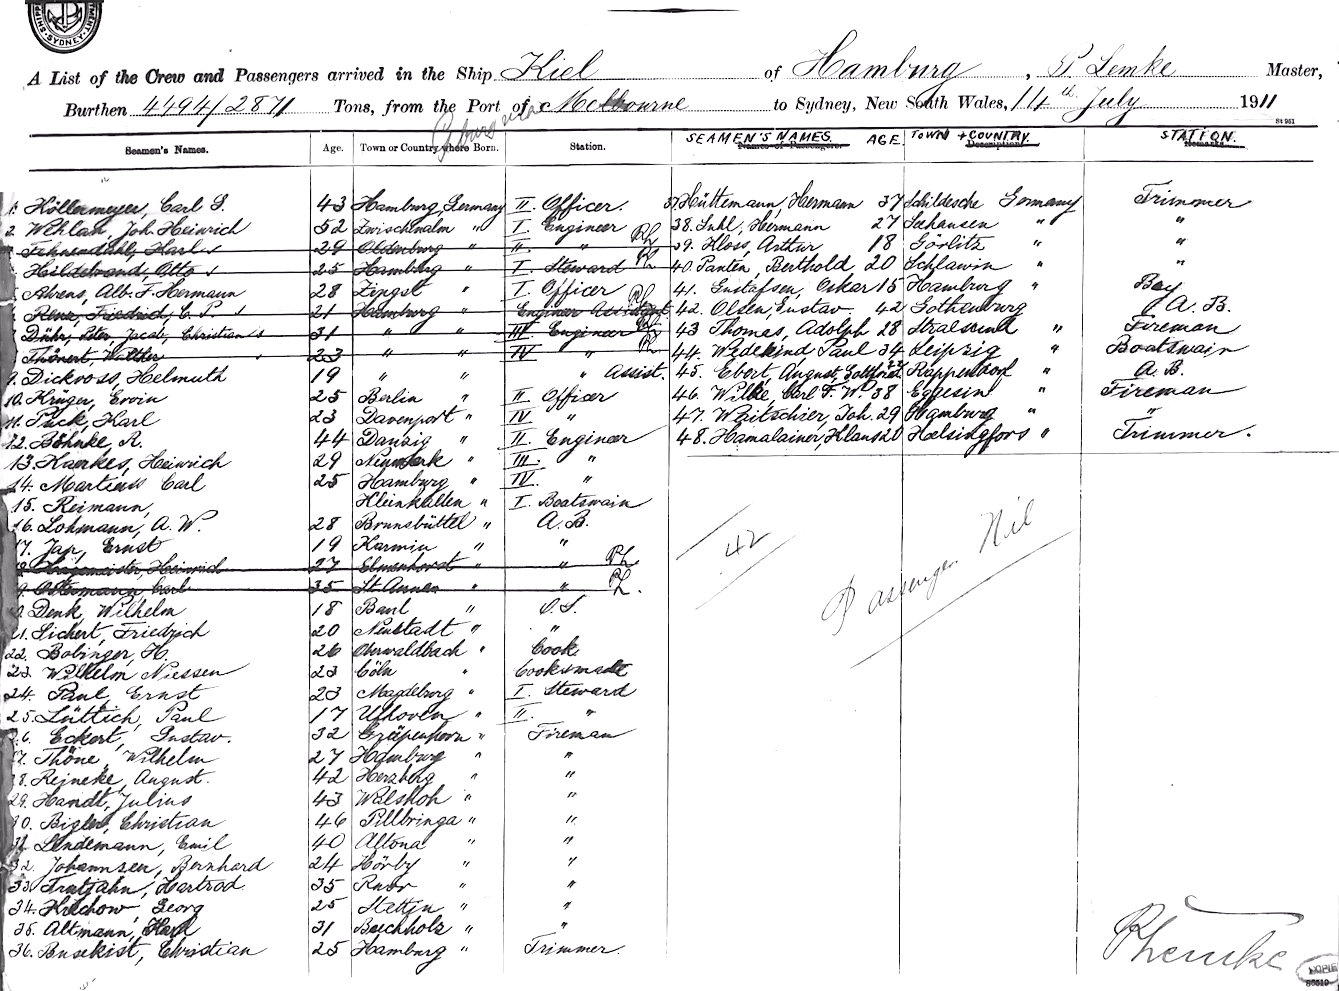 SYDNEY
A List of the Crew and Passengers arrived in the Ship Kiel of Hamburg, P. Lemke Master,
Burthen 4494/2871 Tons, from the Port of Melbourne to Sydney, New South Wales, 14th July 1911
St 961
Seamen's Names. Age. Town or Country where Born. Station. SEAMEN'S NAMES AGE. TOWN + COUNTRY. STATION.
Names of Passengers. Description. Remarks.
1. Höllermeyer, Carl 43 Hamburg, Germany II. Officer.
2. Wehlan, Joh. Heinrich 52 Zwischenalm " I. Engineer
Karl 29 Oldenburg " II. "
Hildebrand, Otto 25 Hamburg " I. Steward
Ahrens, Alb. F. Hermann 28 Zingst " I. Officer
Friedrich, C. P. 21 Hamburg " Engineer Assistant
Dühr, Peter, Jacob, Christian 31 " " III. Engineer
Thönert, Walther 23 " " IV. "
9. Dickvoss, Helmuth 19 " " " Assist.
10. Krüger, Ervin 25 Berlin " II. Officer
11. Puck, Karl 23 Davenport " IV. "
12. Böhnke, R. 44 Danzig " II. Engineer
13. Kaerkes, Heinrich 29 " III. "
14. Martiens Carl 25 Hamburg " IV. "
15. Reimann, Kleinkallen " I. Boatswain
16. Lohmann, A. W. 28 Brunsbüttel " A. B.
17. Jap, Ernst 19 Karmin " "
Heinrich 27 Elmenhorst " "
Ostermann, Carl 35 St. Annen " "
Denk, Wilhelm 18 Bant " O. S.
21. Sichert, Friedrich 20 Neustadt " "
22. Bobinger, H. 26 Oberwaldbach " Cook
23. Wilhelm Niessen 23 Cöln " Cooksmate
24. Paul, Ernst 23 Magdeburg " I. Steward
25. Lüttich, Paul 17 Ufhoven " II. "
26. Eckert, Gustav. 32 " Fireman
27. Thöne, Wilhelm 27 Hamburg " "
28. Reineke, August. 42 Herzberg " "
29. Handt, Julius 43 " "
30. Bigler, Christian 46 Pillbringa " "
31. Lindemann, Emil 40 Altona " "
32. Johannsen, Bernhard 24 Hörby " "
33. Trutjahn, Hartrod 35 " "
34. Kilchow, Georg 25 Stettin " "
35. Altmann, Karl 31 Buchholz " "
36. Busekist, Christian 25 Hamburg " Trimmer.
37. Hüttemann, Hermann 37 Schildesche Germany Trimmer
38. Suhl, Hermann 27 Seehausen " "
39. Kloss, Arthur 18 Görlitz " "
40. Panten, Berthold 20 Schlawin " "
41. Gustafsen, Oskar 15 Hamburg " Boy
42. Olsen, Gustav 42 Gothenburg A. B.
43 Thomas, Adolph 28 Stralsund " Fireman
44. Wedekind Paul 34 Leipzig " Boatswain
45. Ebert, August, Gottfried 27 Rappendorf " A. B.
46. Wilke, Carl F. W. 38 Eggesin " Fireman
47. Writschier, Joh. 29 Hamburg " "
48. Hamalainer, Klans 20 Helsingfors " Trimmer.
42
Passengers Nil
P Lemke
COPIE